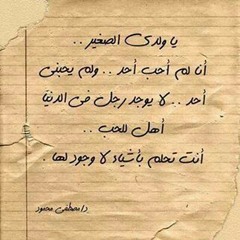 يا ولدى الصغير ..
أنا لم أحب أحد .. ولم يحبنى
أحد .. لا يوجد رجل فى الدنيا
أهل للحب ..
أنت تحلم بأشياء لا وجود لها .
د/مصطفى محمود